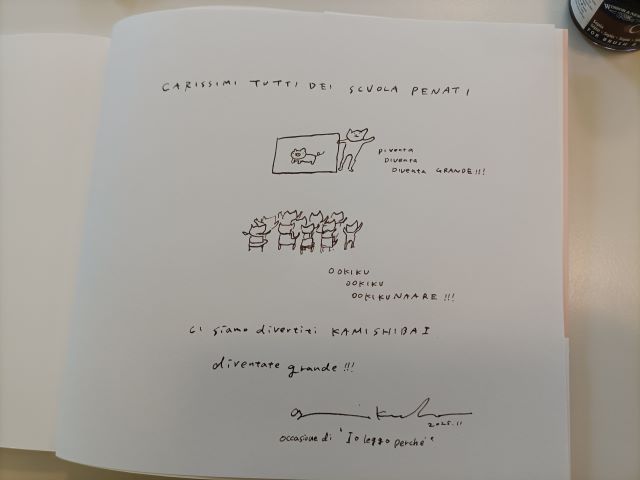 CARISSIMI TUTTI DEI SCUOLA PENATI
Diventa
Diventa
Diventa GRANDE!!!
OOKIKU
OOKIKU
OOKIKUNAARE!!!
Ci siamo divertiti KAMISHIBAI
diventate grande!!!
2025.11
occasione di "Io leggo perché"